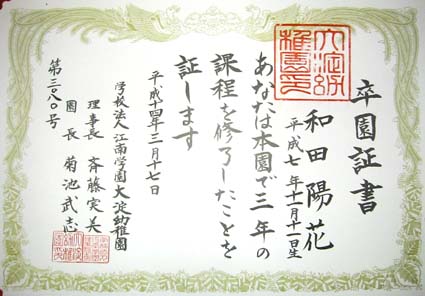 卒園証書
和田陽花
平成七年十一月十一日生
あなたは本園で三年の
課程を修了したことを
証します
平成十四年三月十七日
学校法人江南学園大淀幼稚園
理事長 斉藤実美
園長 菊池武志
第三八〇号